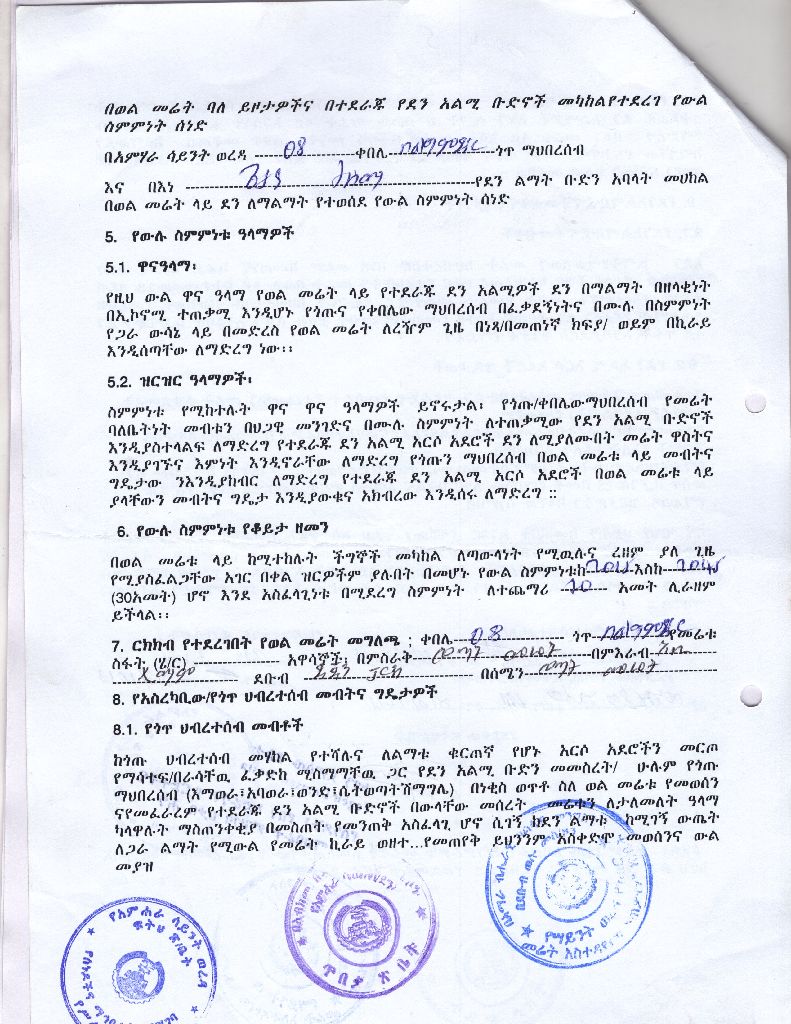 በወል መሬት ባለ ይዞታዎችና በተደራጁ የደን አልሚ ቡድኖች መካከልየተደረገ የውል
ስምምነት ሰነድ
በአምሃራ ሳይንት ወረዳ ------08------------ቀበሌ----------------ጎጥ ማህበረሰብ
እና በእነ ------------------------------------------የደን ልማት ቡድን አባላት መሀከል
በወል መሬት ላይ ደን ለማልማት የተወሰደ የውል ስምምነት ሰነድ
5. የውሉ ስምምነቱ ዓላማዎች
5.1. ዋናዓላማ፡
የዚህ ውል ዋና ዓላማ የወል መሬት ላይ የተደራጁ ደን አልሚዎች ደን በማልማት በዘላቂነት
በኢኮኖሚ ተጠቃሚ እንዲሆኑ የጎጡና የቀበሌው ማህበረሰብ በፈቃደኝነትና በሙሉ በስምምነት
የጋራ ውሳኔ ላይ በመድረስ የወል መሬት ለረዥም ጊዜ በነጻ/በመጠነኛ ክፍያ/ ወይም በኪራይ
እንዲሰጣቸው ለማድረግ ነው፡፡
5.2. ዝርዝር ዓላማዎች፡
ስምምነቱ የሚከተሉት ዋና ዋና ዓላማዎች ይኖሩታል፡ የጎጡ/ቀበሌውማህበረሰብ የመሬት
ባለቤትነት መብቱን በህጋዊ መንገድና በሙሉ ስምምነት ለተጠቃሚው የደን አልሚ ቡድኖች
እንዲያስተላልፍ ለማድረግ የተደራጁ ደን አልሚ አርሶ አደሮች ደን ለሚያለሙበት መሬት ዋስትና
እንዲያገኙና እምነት እንዲኖራቸው ለማድረግ የጎጡን ማህበረሰብ በወል መሬቱ ላይ መብትና
ግዴታው ንእንዲያከብር ለማድረግ የተደራጁ ደን አልሚ አርሶ አደሮች በወል መሬቱ ላይ
ያላቸውን መብትና ግዴታ እንዲያውቁና አክብረው እንዲሰሩ ለማድረግ ::
6. የውሉ ስምምነቱ የቆይታ ዘመን
በወል መሬቱ ላይ ከሚተከሉት ችግኞች መካከል ለጣውላነት የሚዉሉና ረዘም ያለ ጊዜ
የሚያስፈልጋቸው አገር በቀል ዝርዎችም ያሉበት በመሆኑ የውል ስምምነቱከ--------እስከ--------
(30አመት) ሆኖ እንደ አስፈላጊነቱ በሚደረግ ስምምነት ለተጨማሪ --10-- አመት ሊራዘም
ይችላል፡፡
7. ርክክብ የተደረገበት የወል መሬት መግለጫ ; ቀበሌ----08---------- ጎጥ------------የመሬቱ
ስፋት (ሄ/ር) --------------- አዋሳኞች፤ በምስራቅ---------------------በምእራብ------
------------------ ደቡብ ---------------------- በሰሜን----------------------
8. የአስረካቢው/የጎጥ ህብረተሰብ መብትና ግዴታዎች
8.1. የጎጥ ህብረተሰብ መብቶች
ከጎጡ ህብረተሰብ መሃከል የተሻሉና ለልማቱ ቁርጠኛ የሆኑ አርሶ አደሮችን መርጦ
የማሳተፍ/በራሳቸዉ ፈቃድከ ሚስማማቸዉ ጋር የደን አልሚ ቡድን መመስረት/ ሁሉም የጎጡ
ማህበረሰብ (እማወራ፣አባወራ፣ወንድ፣ሴትወጣትሽማግሌ) በነቂስ ወጥቶ ስለ ወል መሬቱ የመወሰን
ናየመፈራረም የተደራጁ ደን አልሚ ቡድኖች በውላቸው መሰረት መሬቱን ለታለመለት ዓላማ
ካላዋሉት ማስጠንቀቂያ በመስጠት የመንጠቅ አስፈላጊ ሆኖ ሲገኝ ከደን ልማቱ ከሚገኝ ውጤት
ለጋራ ልማት የሚውል የመሬት ኪራይ ወዘተ...የመጠየቅ ይህንንም አስቀድሞ መወሰንና ውል
መያዝ
የአምሐራ ሳይንት ወረዳ
ፍትህ ጽ/ቤት
ጥበቃ ጽ/ቤት